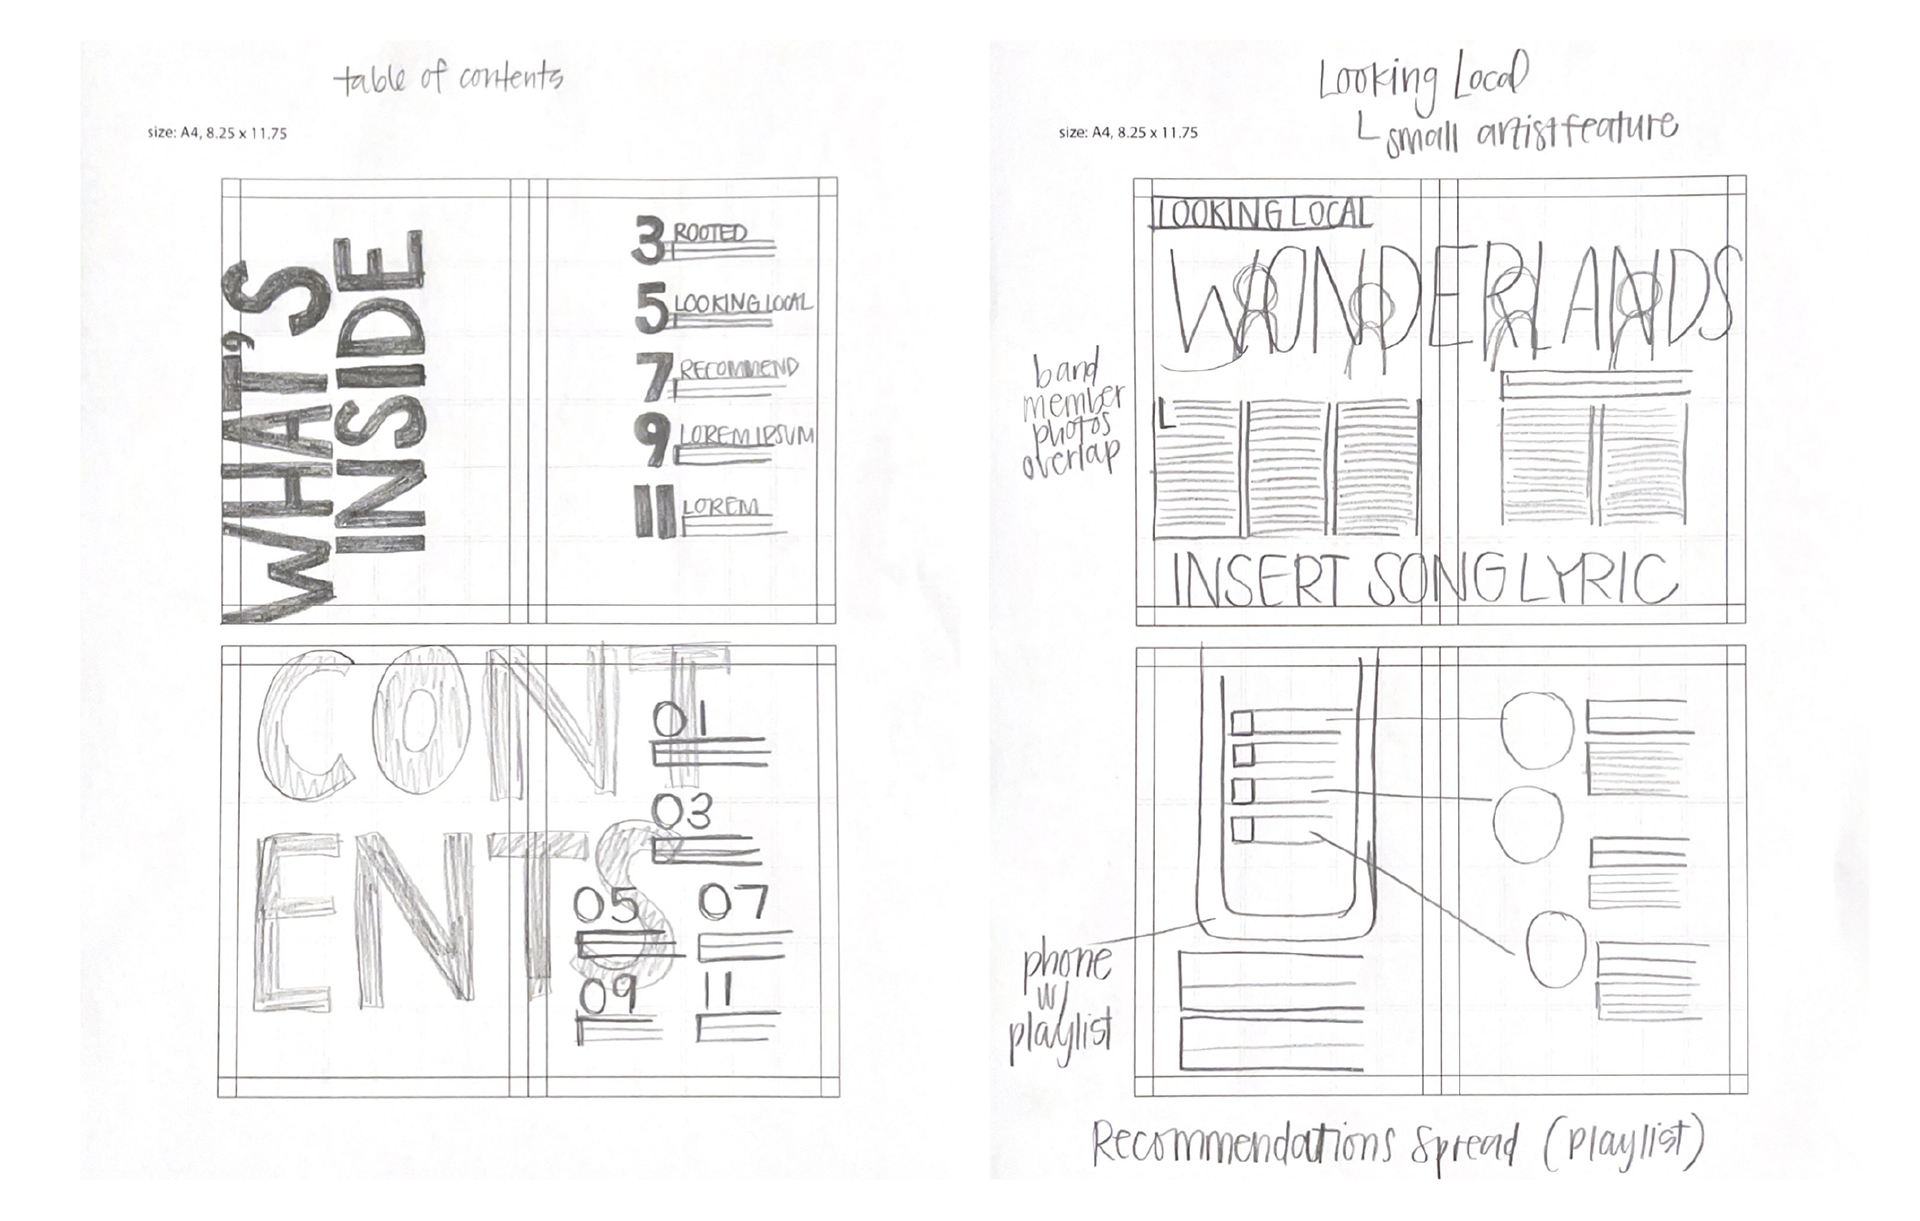 table of contents
size: A4, 8.25 x 11.75
WHAT'S
INSIDE
3 ROOTED
5 LOOKING LOCAL
7 RECOMMEND
9 LOREM IPSUM
11 LOREM
CONT
ENTS
01
03
05 07
09 11
Looking Local
small artist feature
size: A4, 8.25 x 11.75
LOOKING LOCAL
WONDERLANDS
band
member
photos
overlap
INSERT SONG LYRIC
phone
w/
playlist
Recommendations Spread (playlist)